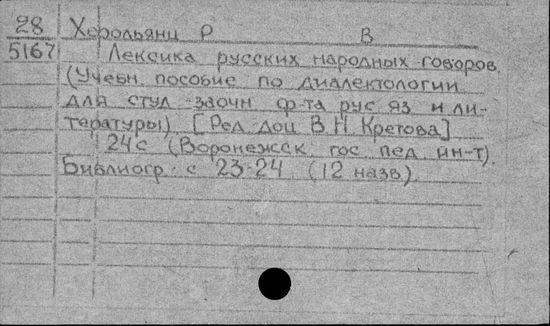 28 Хорольянц Р В
5167 Лексика русских народных говоров
(Учебн. пособие по диалектологии
для студ - заочн ф-та рус яз и ли-
тературы) [Ред доц В Н Кретова]
24с (Воронежск гос пед ин-т).
Библиогр с 23-24 (12 назв)